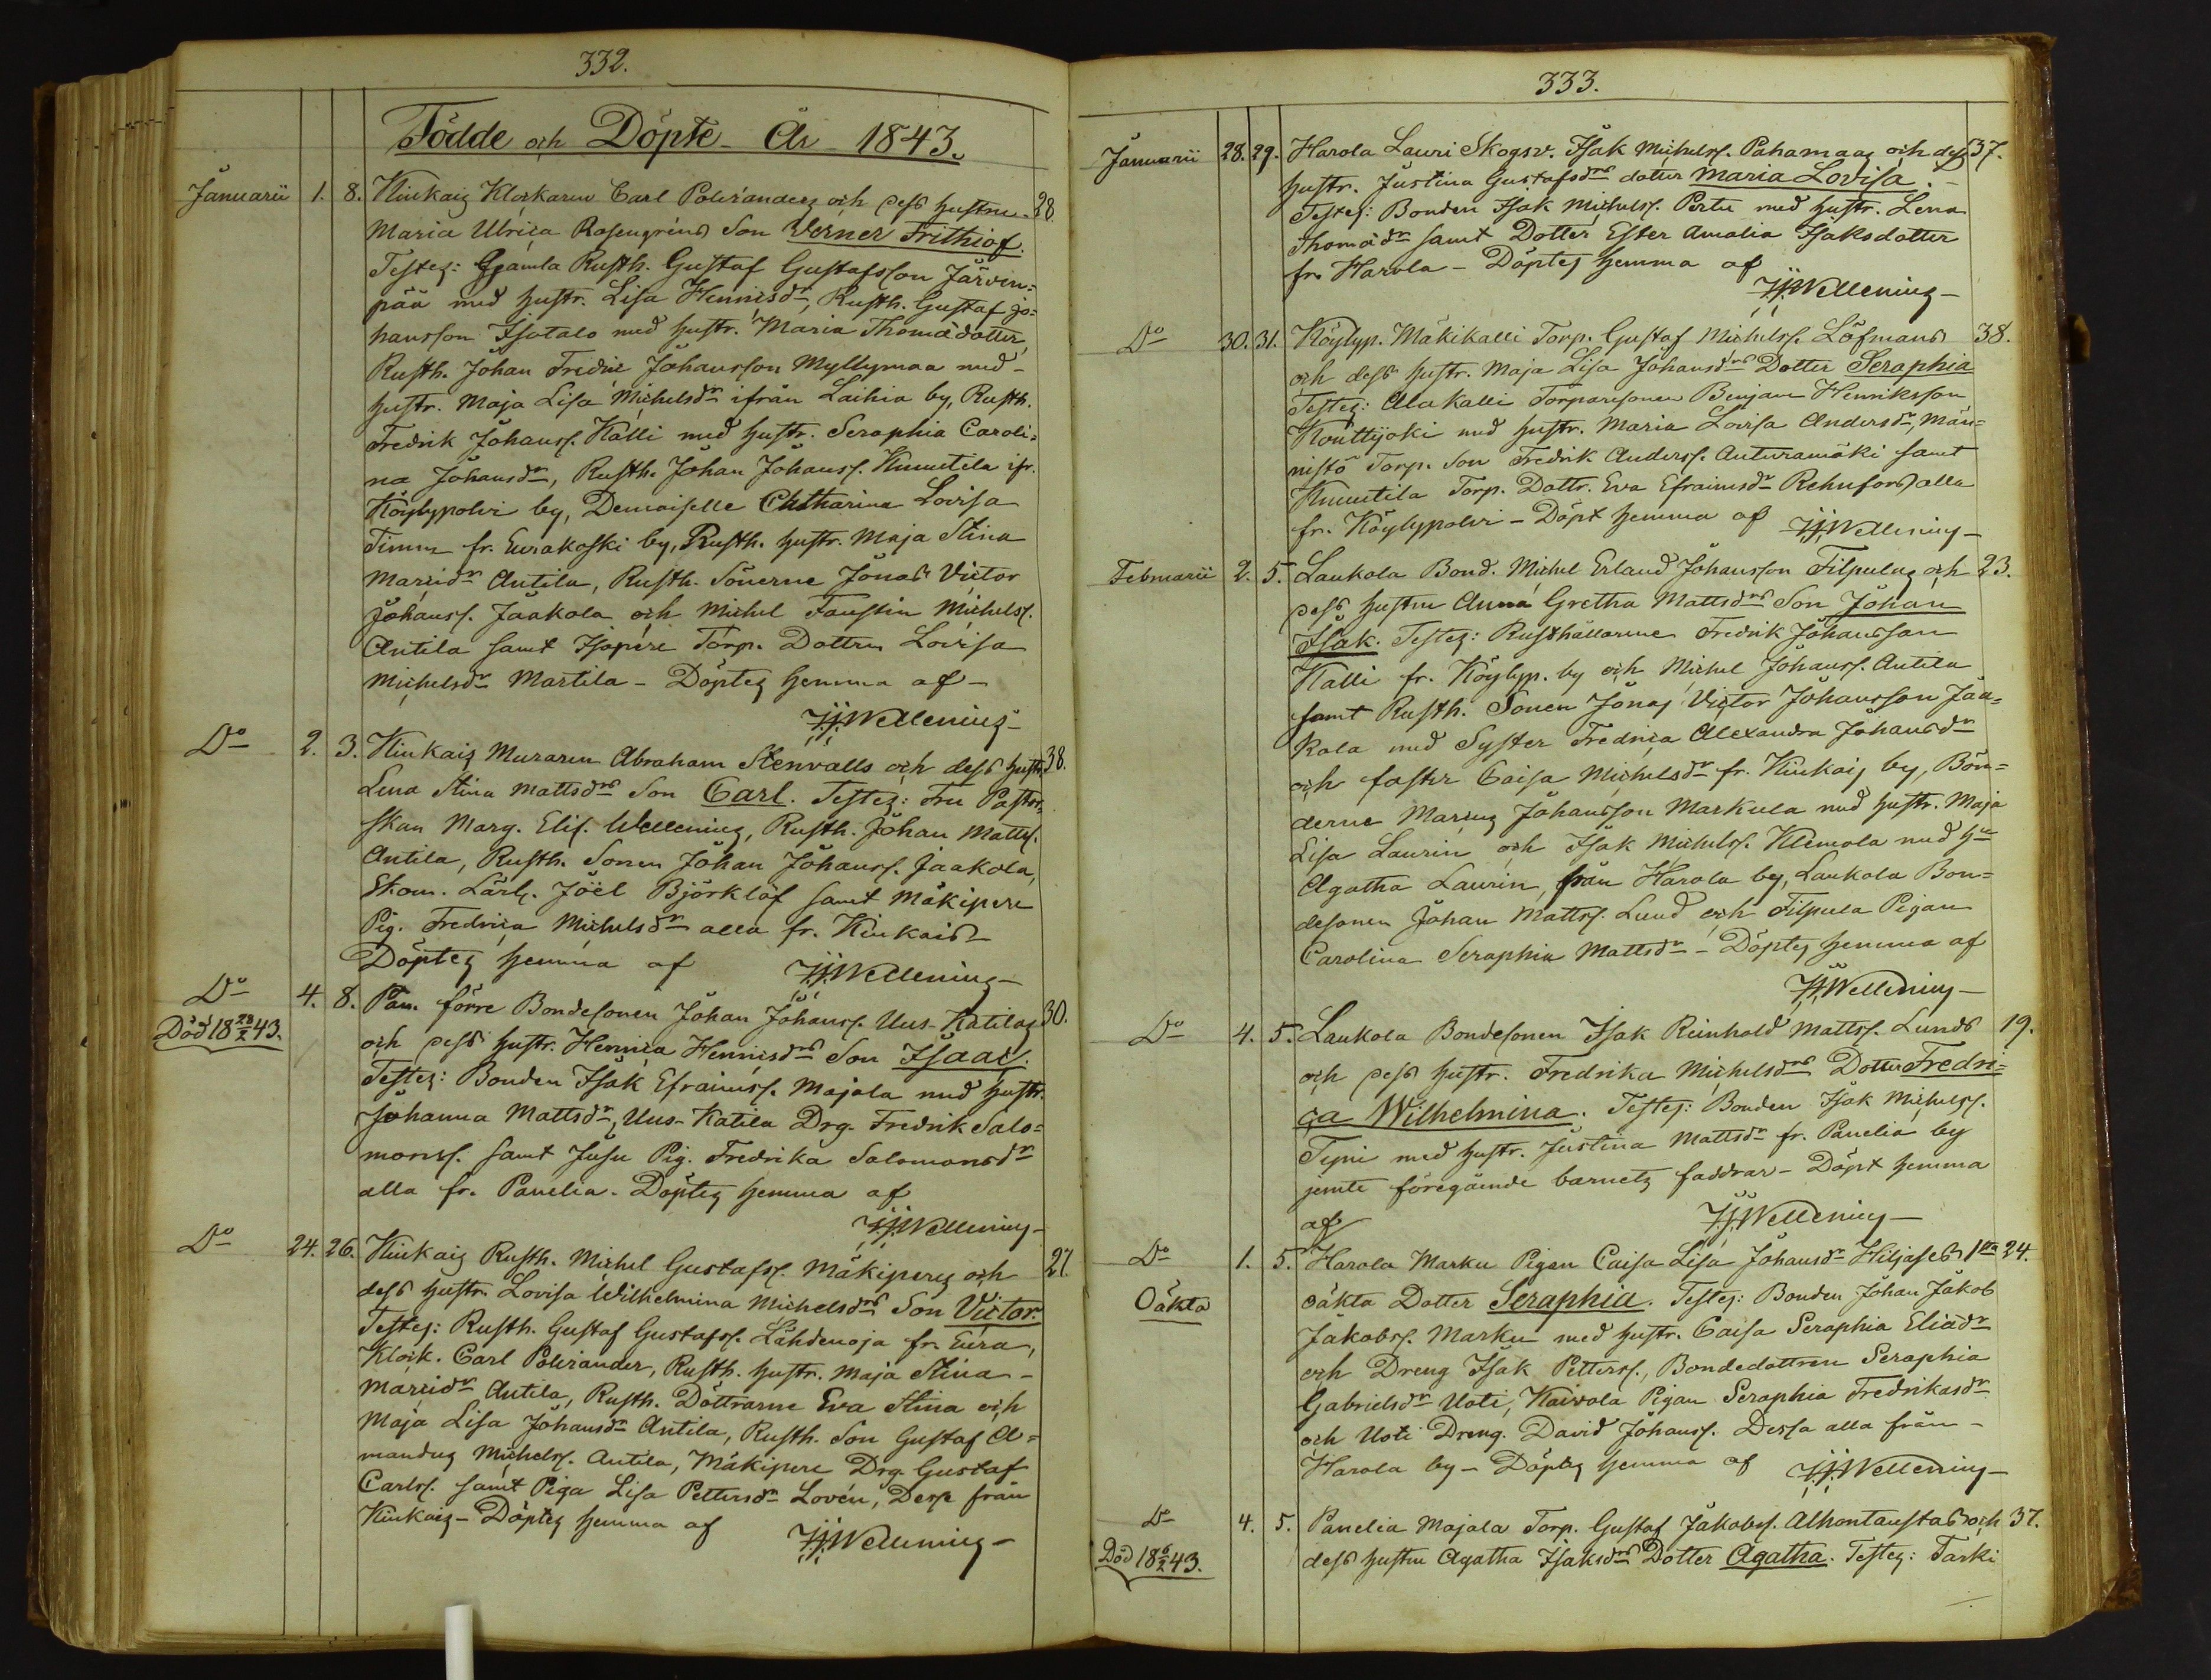 332.
Födde och Döpte År 1843.
Januarii 1. 8. Kiukais Klockaren Carl Polviander och dess hustru 28.
Maria Ulrica Rosengréns Son Verner Frithiof.
Testes: Gamla Rusth. Gustaf Gustafsson Järven=
pää med hustr. Lisa Henricsdr, Rusth. Gustaf Jo=
hansson Isotalo med hustr. Maria Thomædotter,
Rusth. Johan Fredric Johansson Myllymaa med
hustr. Maja Lisa Michelsdr ifrån Laihia by, Rusth.
Fredrik Johanss. Kalli med hustr. Seraphia Caroli=
na Johansdr, Rusth. Johan Johanss. Knuutila ifr.
Köylypolvi by, Demoiselle Chatharina Lovisa
Timm fr. Eurakoski by, Rusth. hustr. Maja Stina
Mariidr Antila, Rusth. Sönerne Jonas Victor
Johanss. Jaakola och Michel Faustin Michelss.
Antila samt Isopere Torp. Dottren Lovisa
Michelsdr Martila - Döptes hemma af
J.J. Wellenius
Do 2. 3. Kiukais Muraren Abraham Stenvalls och dess hustr. 38.
Lena Stina Mattsdrs Son Carl. Testes: Fru Pastor=
skan Marg. Elis. Wellenius, Rusth. Johan Matts.
Antila, Rusth. Sonen Johan Johanss. Jaakola,
Skom. Lärl. Joël Björklöf samt Mäkipere
Pig. Fredrica Michelsdr alla fr. Kiukais
Döptes hemma af J.J. Wellenius
Do 4. 8. Pan. förre Bondesonen Johan Johanss. Uus-Katilas 30.
Död 18 28/2 43.
och dess hustr. Henrica Henricsdrs Son Isaac.
Testes: Bonden Isak Efraimss. Majala med hustr.
Johanna Mattsdr, Uus-Katila Drg. Fredrik Salo=
monss. samt Jusu Pig. Fredrika Salomonsdr
alla fr. Panelia. Döptes hemma af
J.J. Wellenius
Do 24. 26. Kiukais Rusth. Michel Gustafss. Mäkiperes och 27.
dess hustr. Lovisa Wilhelmina Michelsdrs Son Victor.
Testes: Rusth. Gustaf Gustafss. Lähdenoja fr. Eura,
Klock. Carl Polviander, Rusth. hustr. Maja Stina
Mariidr Antila, Rusth. Döttrarne Eva Stina och
Maja Lisa Johansdr Antila, Rusth. Son Gustaf A=
mandus Michelss. Antila, Mäkipere Drg. Gustaf
Carlss. samt Piga Lisa Pettersdr Lovén, Desse från
Kiukais - Döptes hemma af J.J. Wellenius
333.
Januarii 28. 29. Harola Lauri Skogsv. Isak Michelss. Pahamaas och dess 37.
hustr. Justina Gustafsdrs dotter Maria Lovisa.
Testes: Bonden Isak Michelss. Perttu med hustr. Lena
Thomædr samt Dotter Ester Amalia Isaksdotter
fr. Harola - Döptes hemma af
J.J. Wellenius
Do 30. 31. Köylyp. Mäkikalli Torp. Gustaf Michelss. Löfmans 38.
och dess hustr. Maja Lisa Johansdrs Dotter Seraphia
Testes: Alakalli Torparesonen Benjam Henriksson
Kouttijoki med hustr. Maria Lovisa Andersdr, Män=
nistö Torp. Son Fredrik Anderss. Anturamäki samt
Knuutila Torp. Dottr. Eva Efraimsdr Rehnfors alla
fr. Köylypolvi - Döpt hemma af J.J. Wellenius
Februarii 2. 5. Laukola Bond. Michel Erland Johansson Filpulas och 23.
dess hustru Anna Gretha Mattsdrs Son Johan
Isak. Testes: Rusthållarene Fredrik Johansson
Kalli fr. Köylyp. by och Michel Johanss. Antila
samt Rusth. Sonen Jonas Victor Johansson Jaa=
kola med Syster Fredrica Alexandra Johansdr
och faster Caisa Michelsdr fr. Kiukais by, Bön=
derne Marius Johansson Markula med hustr. Maja
Lisa Laurin och Isak Michelss. Klemola med hu
Agatha Laurin, från Harola by, Laukola Bon=
desonen Johan Mattss. Lund och Filpula Pigan
Carolina Seraphia Mattsdr - Döptes hemma af
J.J. Wellenius
Do 4. 5. Laukola Bondesonen Isak Reinhold Mattss. Lunds 19.
och dess hustr. Fredrika Michelsdrs Dotter Fredri=
ca Wilhelmina. Testes: Bonden Isak Michelss.
Typi med hustr. Justina Mattsdr fr. Panelia by
jemte föregående barnets faddrar - Döpt hemma
af J.J. Wellenius
Do 1. 5. Harola Marku Pigan Caisa Lisa Johansdr Hiljases 1sta 24.
Oäkta
oäkta Dotter Seraphia. Testes: Bonden Johan Jakob
Jakobss. Marku med hustr. Caisa Seraphia Eliædr
och Dreng Isak Petterss., Bondedottren Seraphia
Gabrielsdr Uoti, Kaivola Pigan Seraphia Fredriksdr
och Uoti Dreng. David Johanss. Dessa alla från
Harola by - Döptes hemma af J.J. Wellenius
Do 4. 5. Panelia Majala Torp. Gustaf Jakobss. Alhontaustas och 37.
Död 18 6/2 43.
dess hustru Agatha Isaksdrs Dotter Agatha. Testes: Tarki